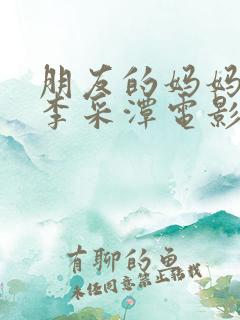 朋友的妈妈
李采潭电影
有聊的鱼
未经同意禁止转载